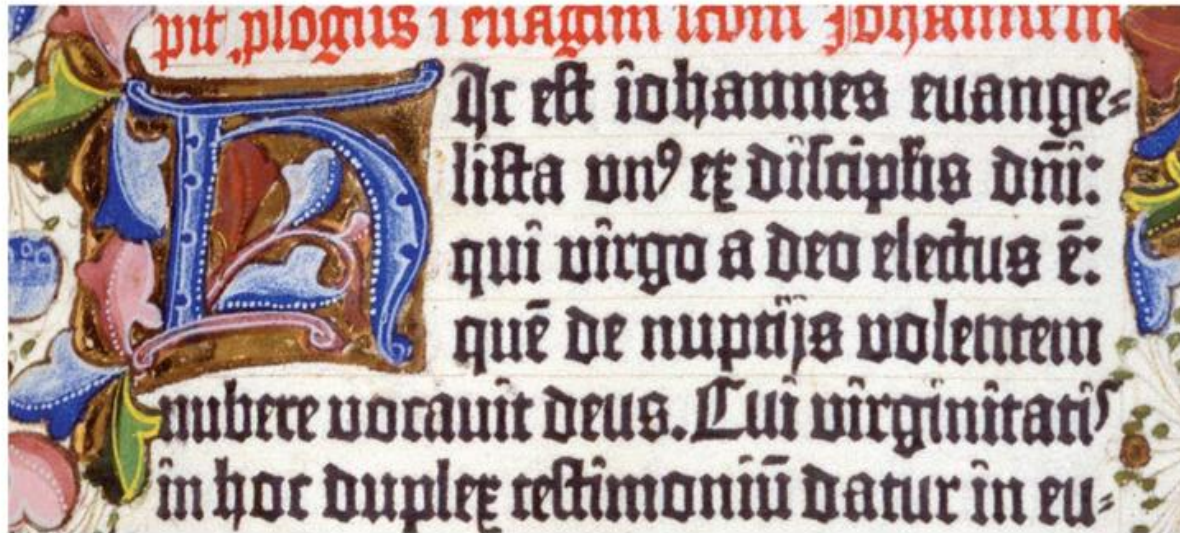 pit plogus i Johannem
HIc est iohannes euange-
lista unꝰ ex discipl̄is dn̄i:
qui uirgo a deo electus ē:
quē de nuptijs uolentem
nubere uocauit deus. Cui uirginitatis
in hoc duplex testimoniū datur in eu-